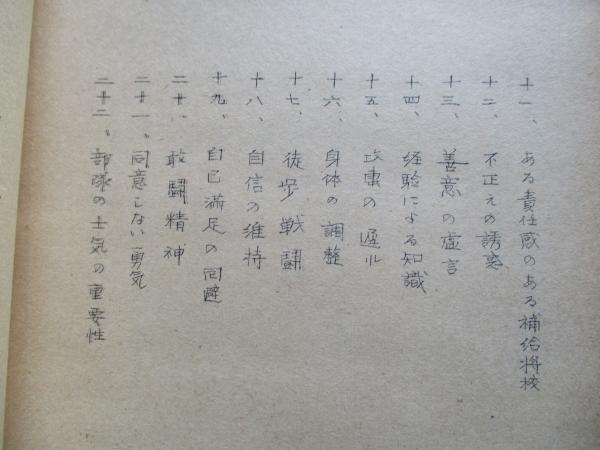 十一、ある責任感のある補給将校
十二、不正えの誘惑
十三、善意の虚言
十四、経験による知識
十五、攻虫の遅れ
十六、身体の調整
十七、徒歩戦闘
十八、自信の維持
十九、自己満足の回避
二十、敢闘精神
二十一、同意しない勇気
二十二、部隊の士気の重要性